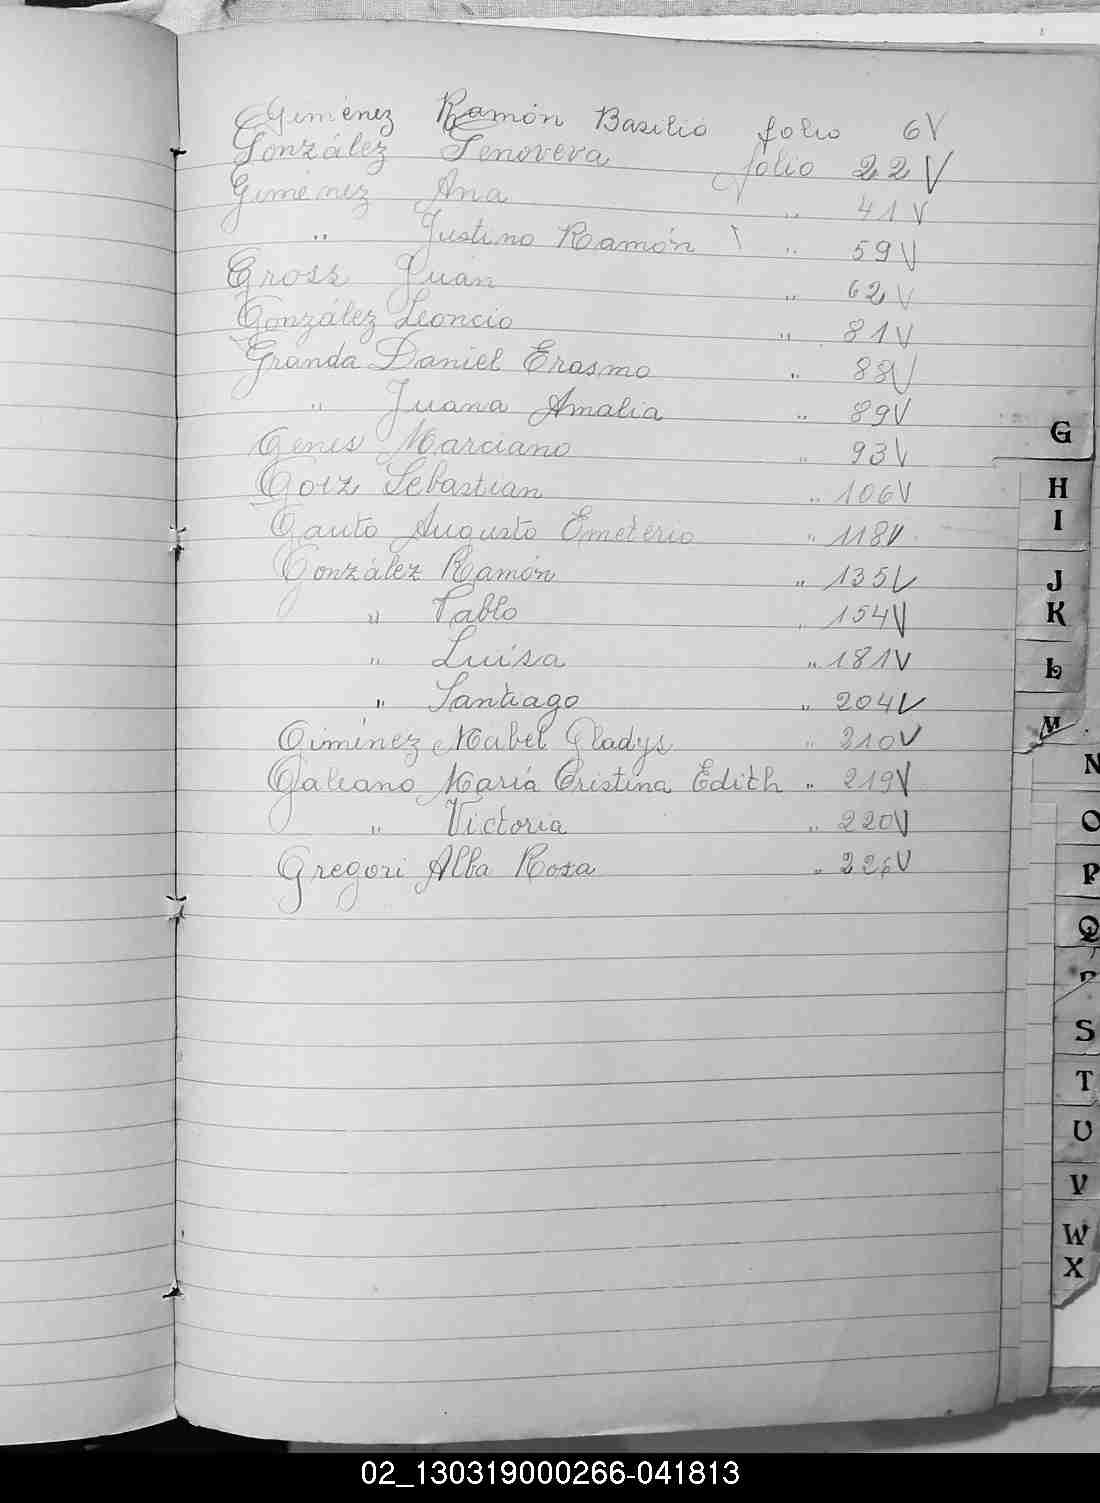 Giménez Ramón Basilio folio 6V
González Genoveva folio 22V
Giménez Ana " 41V
" Justino Ramón " 59V
Gross Juan " 62V
González Leoncio " 81V
Granda Daniel Erasmo " 88V
" Juana Amalia " 89V
Genes Marciano " 93V
Goiz Sebastian " 106V
Gauto Augusto Emeterio " 118V
González Ramón " 135V
" Pablo " 154V
" Luisa " 181V
" Santiago " 204V
Giminez Mabel Gladys " 210V
Galeano María Cristina Edith " 219V
" Victoria " 220V
Gregori Alba Rosa " 226V
G
H
I
J
K
L
M
N
O
P
Q
R
S
T
U
V
W
X
02_130319000266-041813